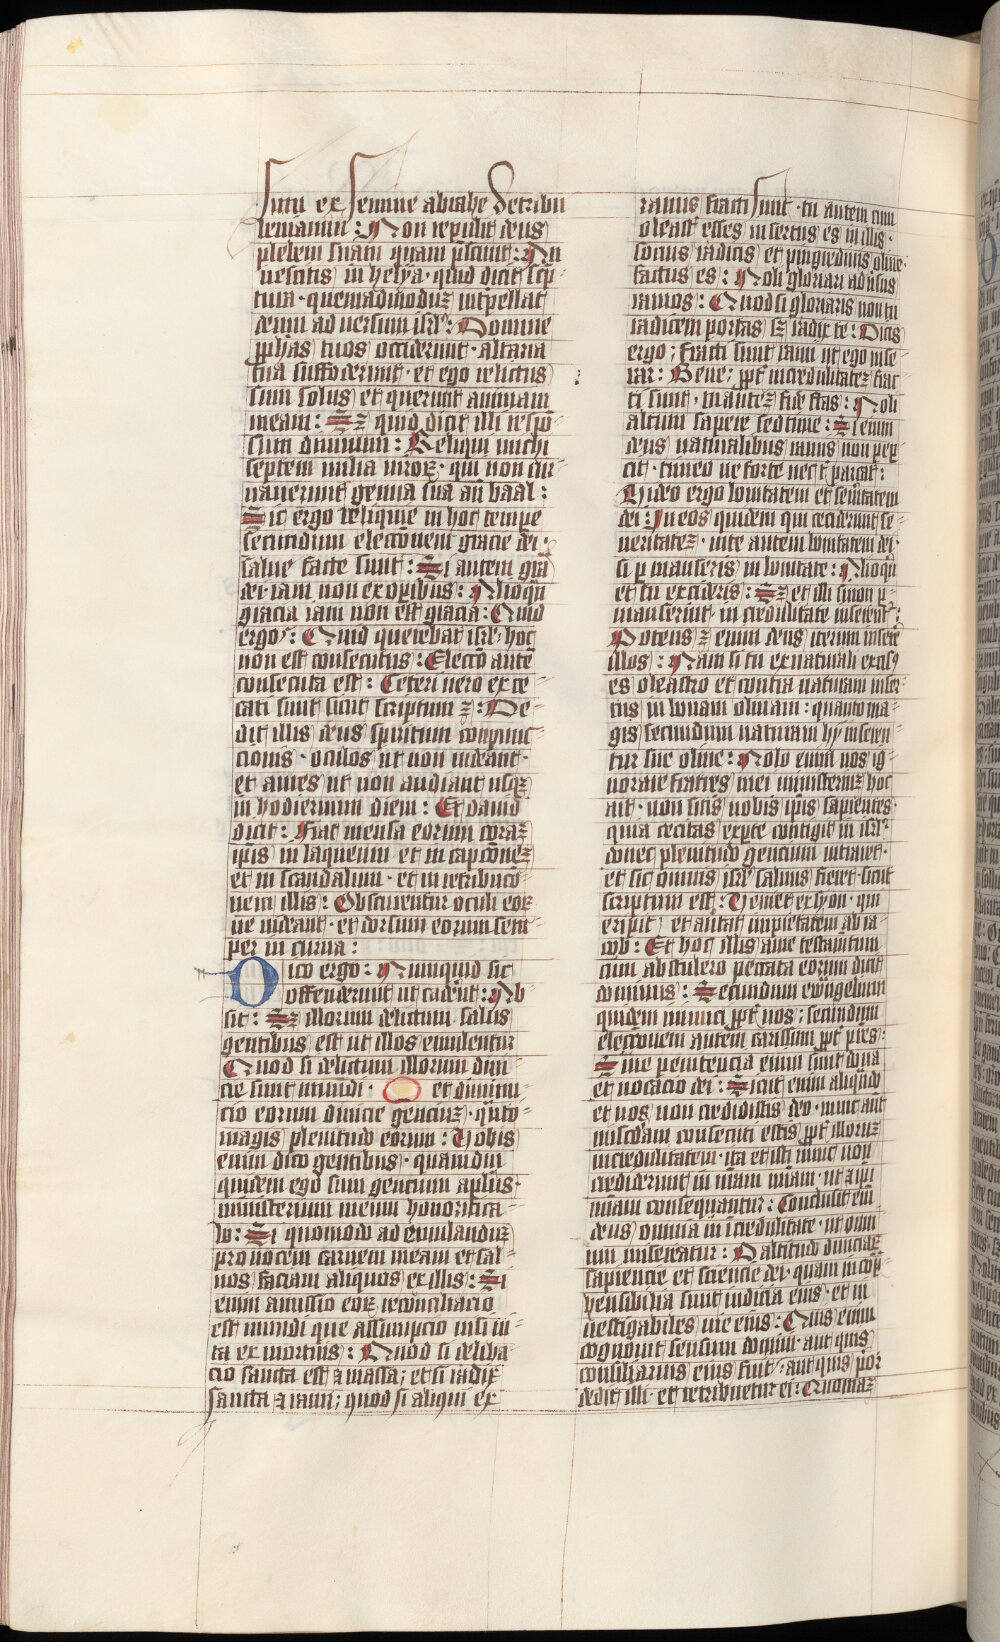 sum ex semine abrahe de tribu
beniamin : Non repulit deus
plebem suam quam p̄sciuit : An
nescitis in helya · quid dicit scͥp
tura · quemadmoduꝫ int̄pellat
deum aduersum isrl̄ : Domine
ꝓphas tuos occiderunt · altaria
tua suffoderunt · et ego relictus
sum solus et querunt animam
meam : Sꝫ quid dicit illi respō
sum diuinum : Reliqui michi
septem milia viroꝝ · qui non cur
uauerunt genua sua an̄ baal :
Sic ergo reliquie in hoc tempe
secundum elecc̄onem gracie dei ·
salue facte sunt : Si autem grā
dei iam non ex oꝑibus : Alioqn̄
gracia iam non est gracia : Quid
ergo : Quid querebat isrl̄ hoc
non est consecutus : Elecc̄o autē
consecuta est : Ceteri uero exce
cati sunt sicut scriptum ꝫ : De
dit illis deus spiritum conpunc
cionis · oculos ut non uideant ·
et aures ut non audiant usqꝫ
in hodiernum diem : Et dauid
dicit : Fiat mensa eorum coraꝫ
ipīs in laqueum · et in capc̄oneꝫ
et in scandalum · et in retribuc̄o
nem illis : Obscurentur oculi eoꝝ
ne uideant · et dorsum eorum sem
per incurua :
Dico ergo : Nunquid sic
offenderunt ut caderēt : Ab
sit : Sꝫ illorum delictum salus
gentibus est ut illos emulentur
Quod si delictum illorum diui
cie sunt mundi · et diminu
cio eorum diuicie genciuꝫ · quāto
magis plenitudo eorum : Vobis
enim dico gentibus · quamdiu
quidem ego sum gencium apl̄us ·
ministerium meum honorifica
bo : Si quomodo ad emulanduꝫ
prouocem carnem meam et sal
uos faciam aliquos ex illis : Si
enim amissio eoꝝ reconciliacio
est mundi que assumpcio nisi ui
ta ex mortuis : Quod si deliba
cio sancta est ⁊ massa ; et si radix
sancta ⁊ rami ; quod si aliqui ex
ramis fracti sunt · tu autem cum
oleast̄ esses insertus es in illis ·
socius radicis et pinguedinis oliue ·
factus es : Noli gloriari aduersus
ramos : Quod si gloriaris non tu
radicem portas sꝫ radix te : Dicis
ergo ; fracti sunt rami ut ego inse
rar : Bene ; ꝓpt̄ incredulitateꝫ frac
ti sunt · tu auteꝫ fide stas : Noli
altum sapere sed time : Si enim
deus naturalibus ramis non peꝑ
cit · timeo ne forte nec t̄ parcat :
Vide ergo bonitatem et seuītatem
dei : In eos quidem qui ceciderunt se
ueritateꝫ · in te autem bonitatem dei ·
si ꝑmanseris in bonitate : Alioqn̄
et tu excideris : Sꝫ et illi si non ꝑ
manserint in c̄dulitate inserent̄ :
Potens ꝫ enim deus iterum inserē
illos : Nam si tu ex naturali excisꝰ
es oleastro et contra naturam inser
tus in bonam oliuam : quanto ma
gis secundum naturam hy inseren
tur sue oliue : Nolo enim uos ig
norare fratres mei ministeriuꝫ hoc
aīt · non sitis uobis ip̄is sapientes ·
quia cecitas ex p̄te contigit in isrl̄ ·
donec plenitudo gencium intraret ·
et sic omnis isrl̄ saluus fieret · sicut
scriptum est : Veniet ex syon · qui
eripit · et auertat impietatem ab ia
cob : Et hoc illis a me testam̄tum
cum abstulero peccata eorum dicit
dominus : Secundum ewngelium
quidem inimici ꝓpt̄ uos ; secundum
elecc̄onem autem carissimi ꝓpt̄ pr̄es :
Sine penitencia enim sunt dona
et uocacio dei : Sicut enim aliqn̄do
et uos non credidistis deo · nunc aut̄
misc̄diam consecuti estis ꝓpt̄ illoruꝫ
incredulitatem · ita et isti nunc non
crediderunt in ur̄am mīam · ut ⁊ ip̄i
mīam consequantur : Conclusit eī
deus omnia in incredulitate · ut omi
um misereatur : O altitudo diuiciaꝝ
sapiencie et sciencie dei · quam incōp
hensibilia sunt iudicia eius · et in
uestigabiles uie eius : Quis enim
cognouit sensum domini · aut quis
consiliarius eius fuit · aut quis por
dedit illi · et retribuetur ei : Quoniaꝫ